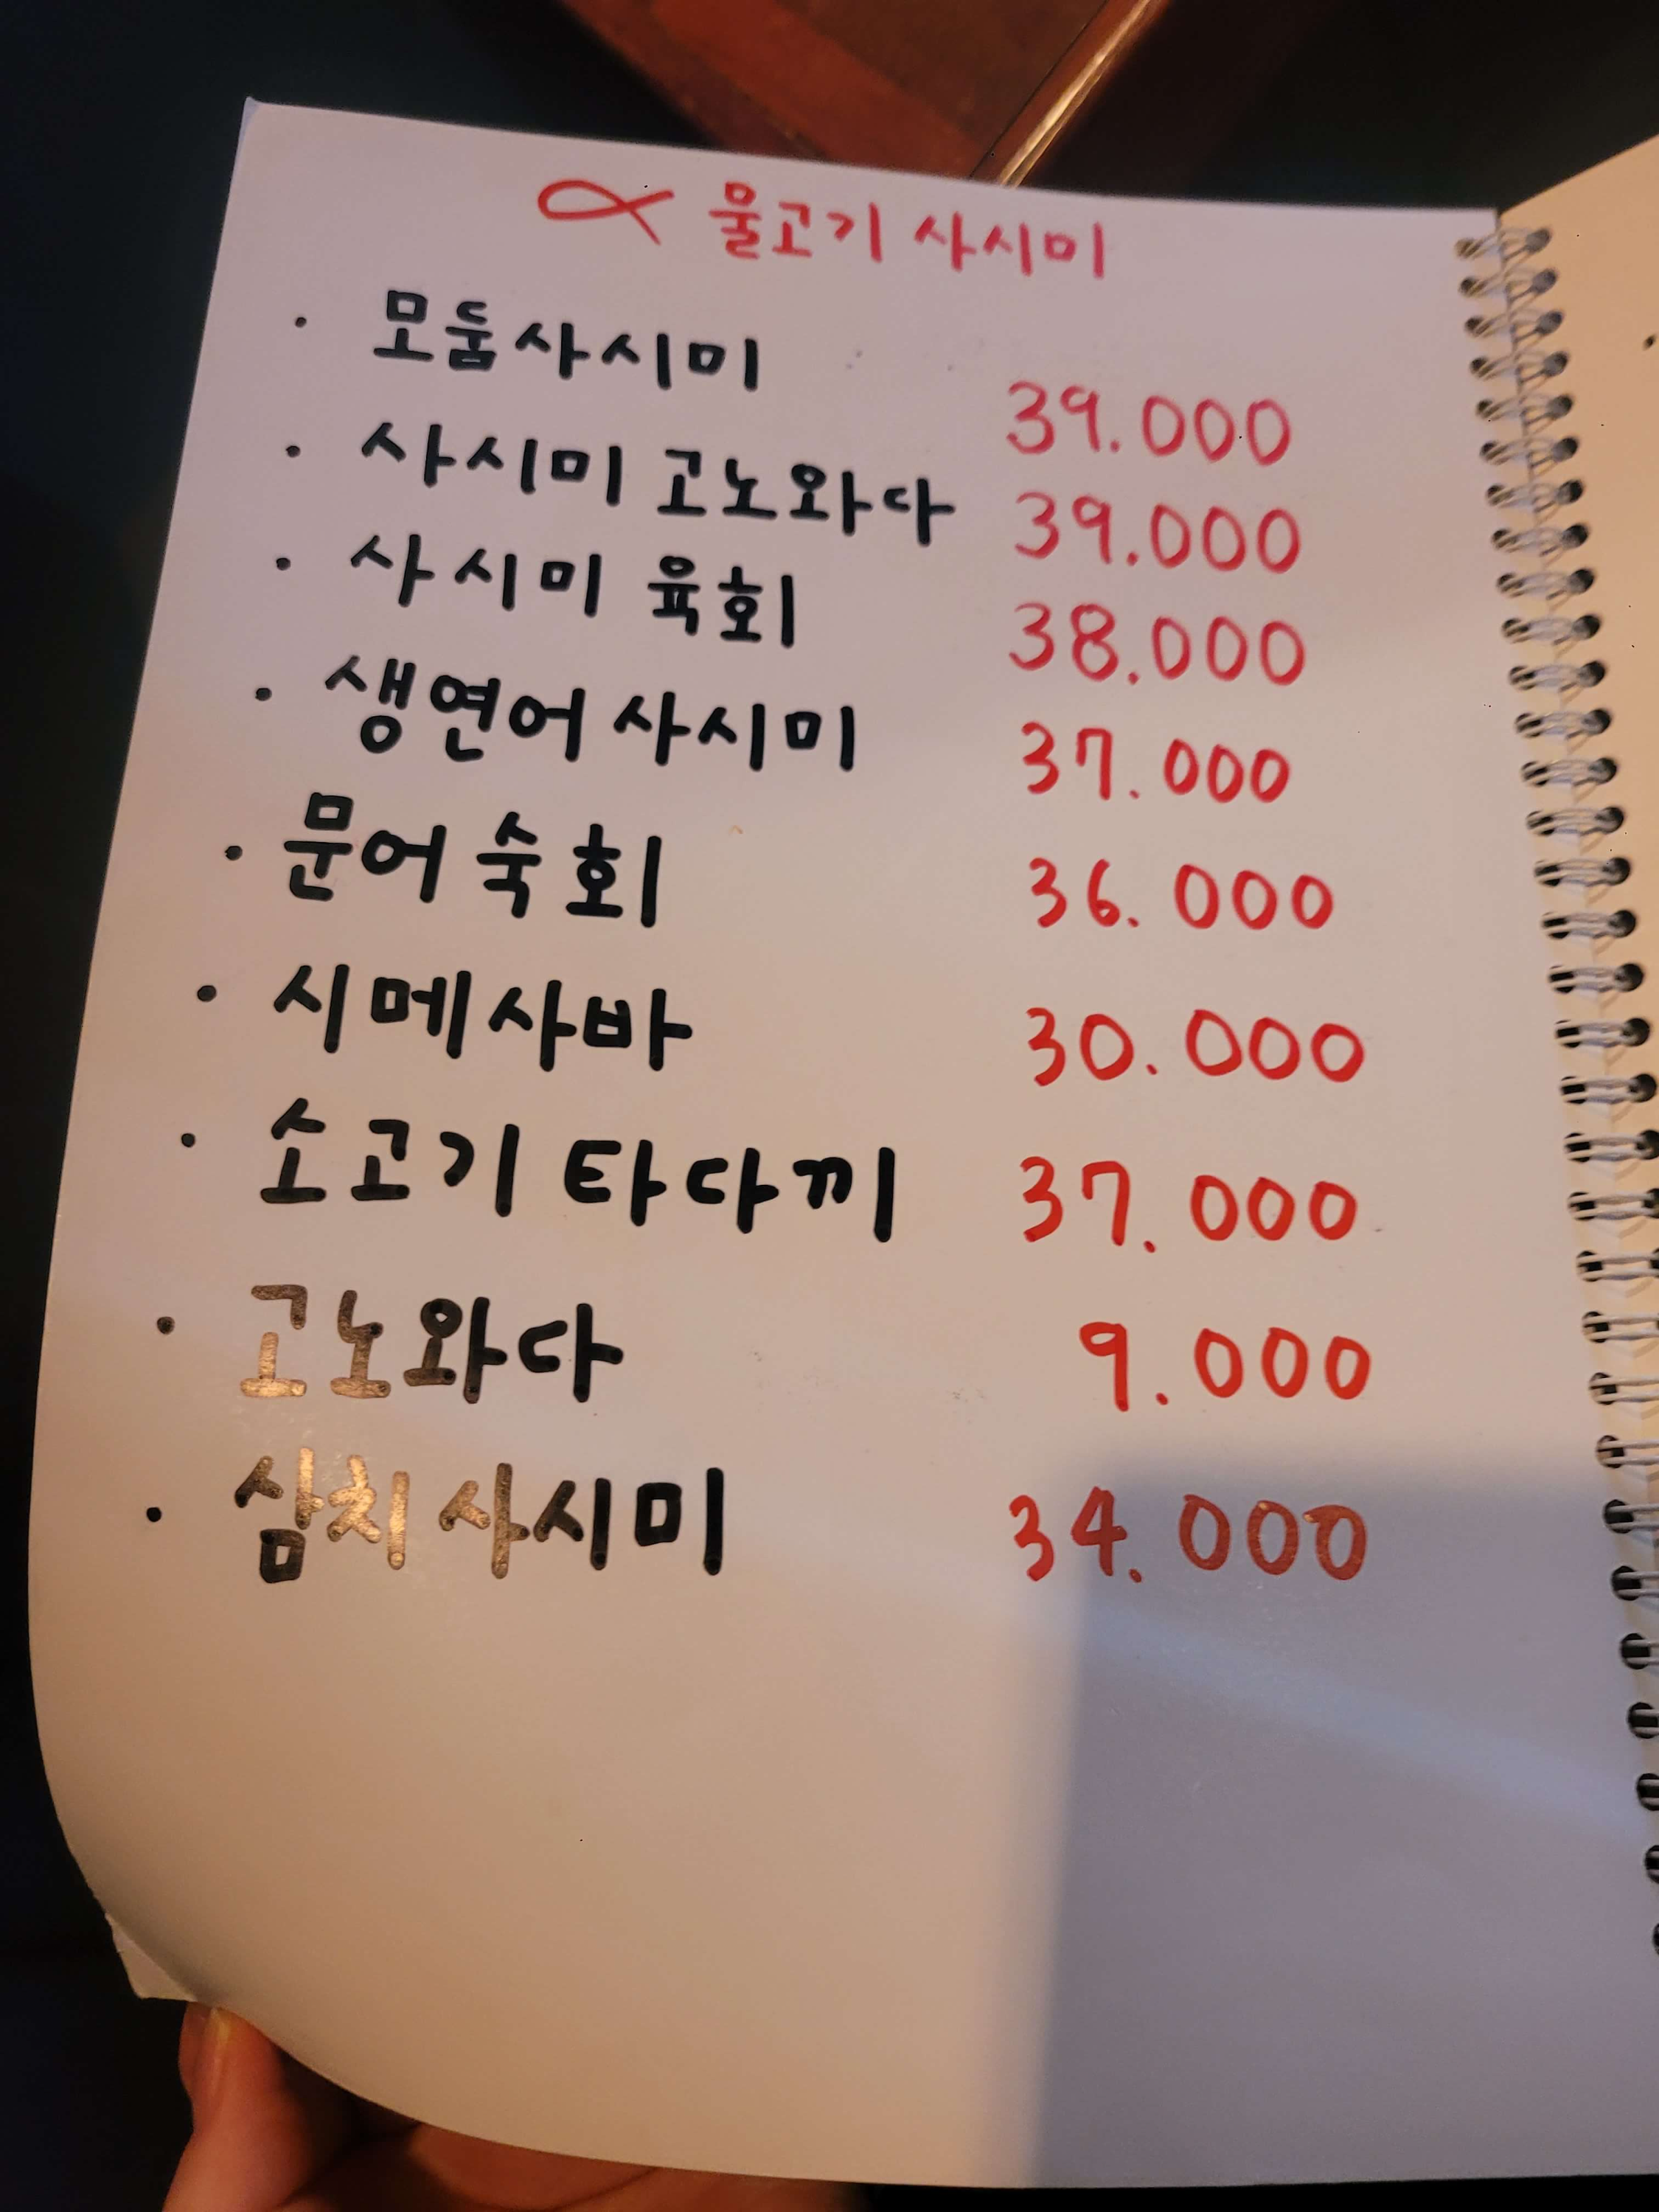 물고기 사시미
· 모둠사시미 39.000
· 사시미 고노와다 39.000
· 사시미 육회 38.000
· 생연어 사시미 37.000
· 문어 숙회 36.000
· 시메사바 30.000
· 소고기 타다끼 37.000
· 고노와다 9.000
· 삼치 사시미 34.000